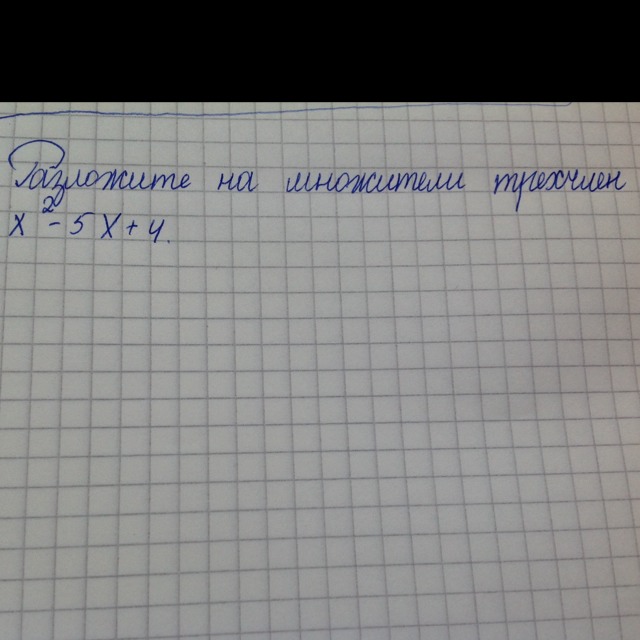 Разложите на множители трехчлен
x² - 5x + 4.